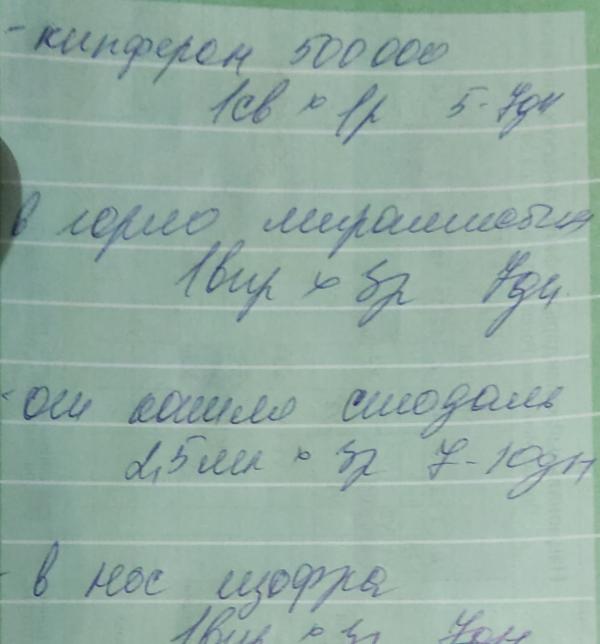 - кипферон 500000
1св × 1р 5-7дн
в горло мирамистин
1впр × 3р 7дн.
- от кашля стодаль
2,5мл × 3р 7-10дн
- в нос изофра
1впр × 3р 7дн